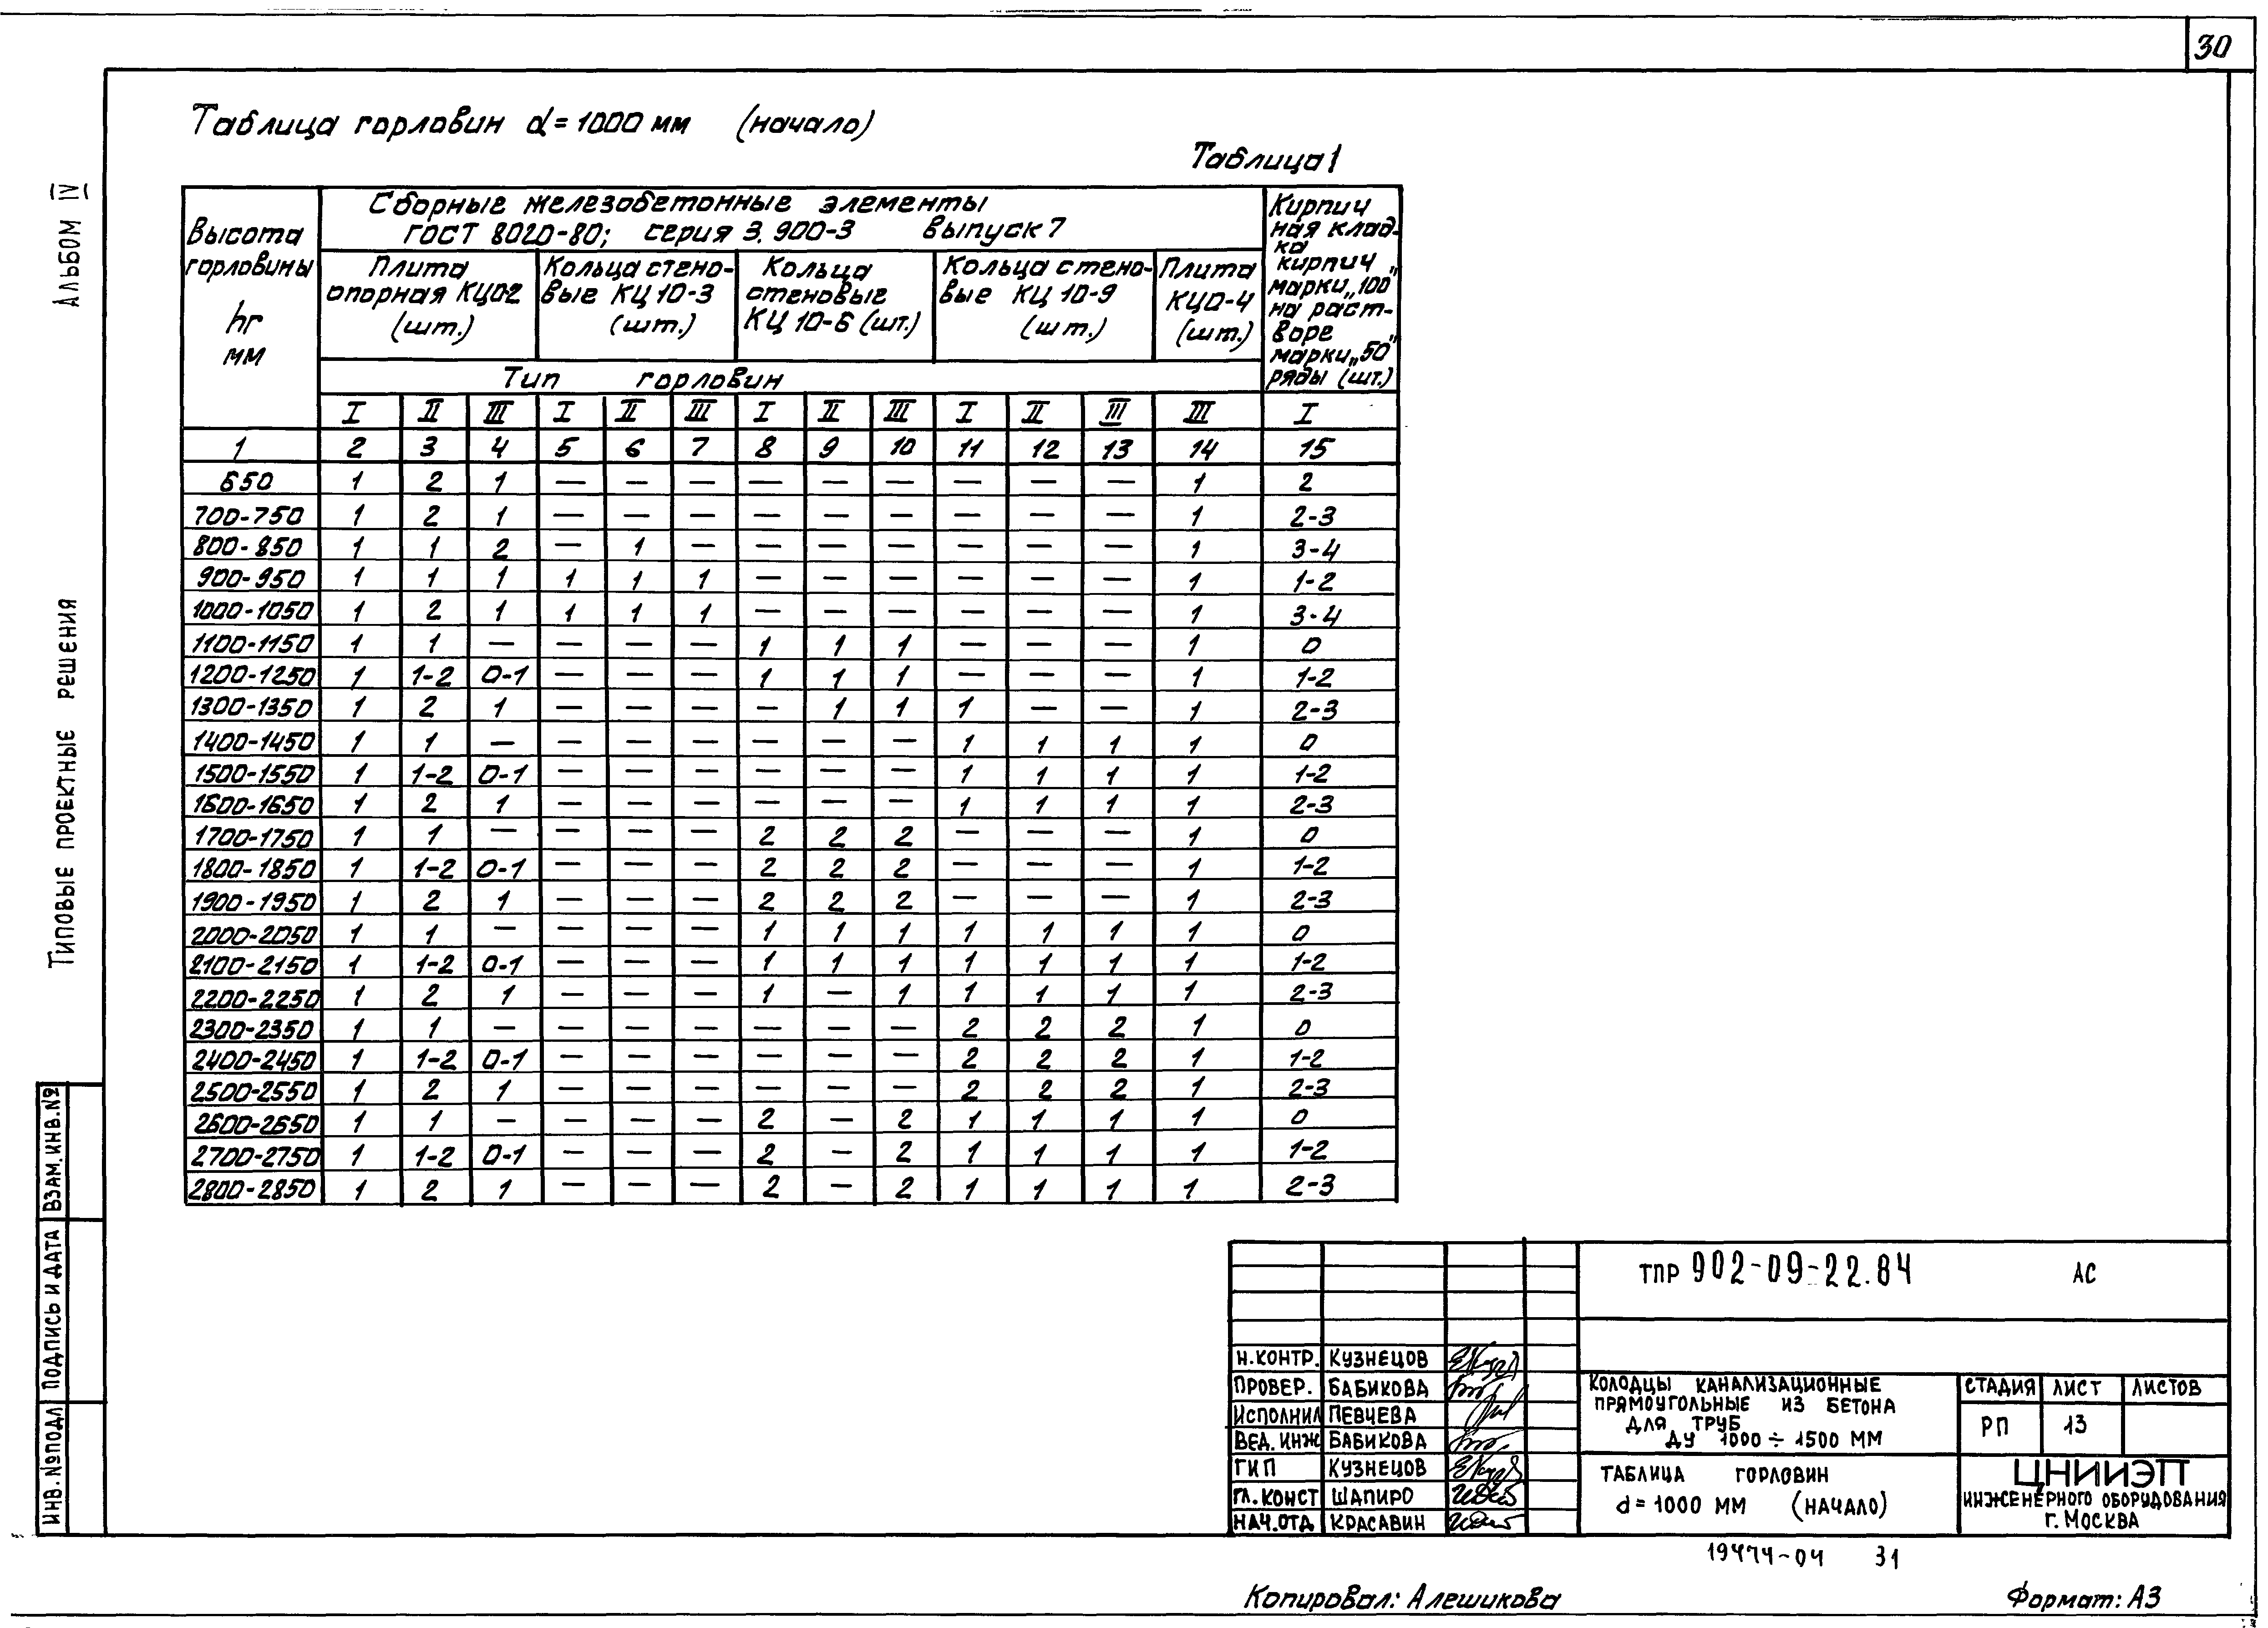 30
Таблица горловин d=1000 мм (начало)
Таблица 1
Высота горловины hг мм
Сборные железобетонные элементы
ГОСТ 8020-80; серия 3.900-3 выпуск 7
Плита опорная КЦО2 (шт.)
Кольца стено-вые КЦ 10-3 (шт.)
Кольца стеновые КЦ 10-6 (шт.)
Кольца стено-вые КЦ 10-9 (шт.)
Плита КЦО-4 (шт.)
Кирпич ная клад-ка кирпич марки „100" на раст-воре марки „50" ряды (шт.)
Тип горловин
I II III I II III I II III I II III III I
1 2 3 4 5 6 7 8 9 10 11 12 13 14 15
650 1 2 1 — — — — — — — — — 1 2
700-750 1 2 1 — — — — — — — — — 1 2-3
800-850 1 1 2 — 1 — — — — — — — 1 3-4
900-950 1 1 1 1 1 1 — — — — — — 1 1-2
1000-1050 1 2 1 1 1 1 — — — — — — 1 3-4
1100-1150 1 1 — — — — 1 1 1 — — — 1 0
1200-1250 1 1-2 0-1 — — — 1 1 1 — — — 1 1-2
1300-1350 1 2 1 — — — — 1 1 1 — — 1 2-3
1400-1450 1 1 — — — — — — — 1 1 1 1 0
1500-1550 1 1-2 0-1 — — — — — — 1 1 1 1 1-2
1600-1650 1 2 1 — — — — — — 1 1 1 1 2-3
1700-1750 1 1 — — — — 2 2 2 — — — 1 0
1800-1850 1 1-2 0-1 — — — 2 2 2 — — — 1 1-2
1900-1950 1 2 1 — — — 2 2 2 — — — 1 2-3
2000-2050 1 1 — — — — 1 1 1 1 1 1 1 0
2100-2150 1 1-2 0-1 — — — 1 1 1 1 1 1 1 1-2
2200-2250 1 2 1 — — — 1 — 1 1 1 1 1 2-3
2300-2350 1 1 — — — — — — — 2 2 2 1 0
2400-2450 1 1-2 0-1 — — — — — — 2 2 2 1 1-2
2500-2550 1 2 1 — — — — — — 2 2 2 1 2-3
2600-2650 1 1 — — — — 2 — 2 1 1 1 1 0
2700-2750 1 1-2 0-1 — — — 2 — 2 1 1 1 1 1-2
2800-2850 1 2 1 — — — 2 — 2 1 1 1 1 2-3
Альбом IV
Типовые проектные решения
Взам. инв. №
Подпись и дата
Инв. № подл
ТПР 902-09-22.84 АС
Н.контр. Кузнецов
Провер. Бабикова
Исполнил Певчева
Вед. инж Бабикова
ГИП Кузнецов
Гл. конст Шапиро
Нач.отд Красавин
Колодцы канализационные
прямоугольные из бетона
для труб
Ду 1000 ÷ 1500 мм
Стадия Лист Листов
РП 13
Таблица горловин
d=1000 мм (начало)
ЦНИИЭП
инженерного оборудования
г. Москва
19474-04 31
Копировал: Алешикова
Формат: А3